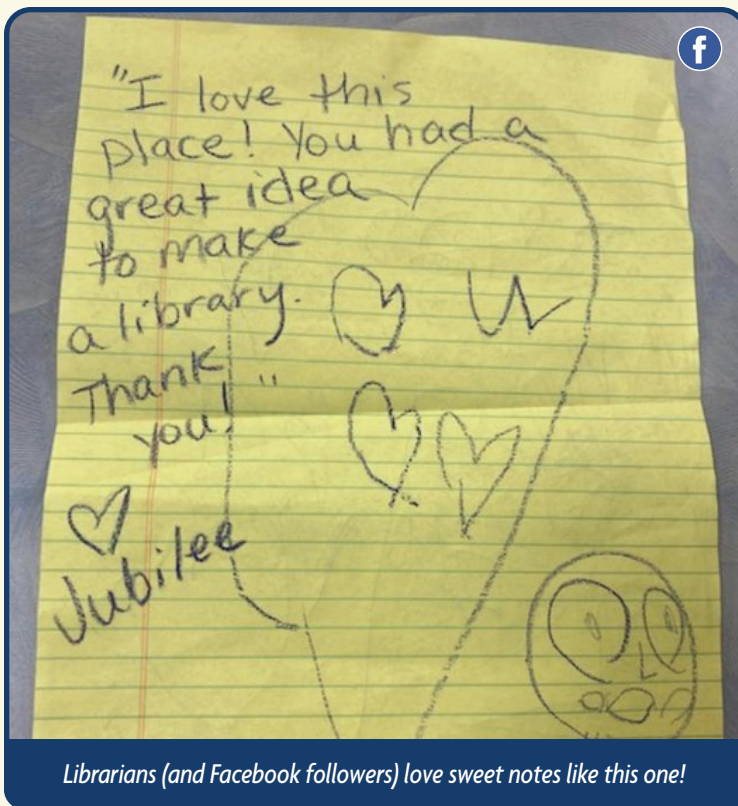 "I love this
place! You had a
great idea
to make
a library.
Thank
you!"
Jubilee
f
Librarians (and Facebook followers) love sweet notes like this one!